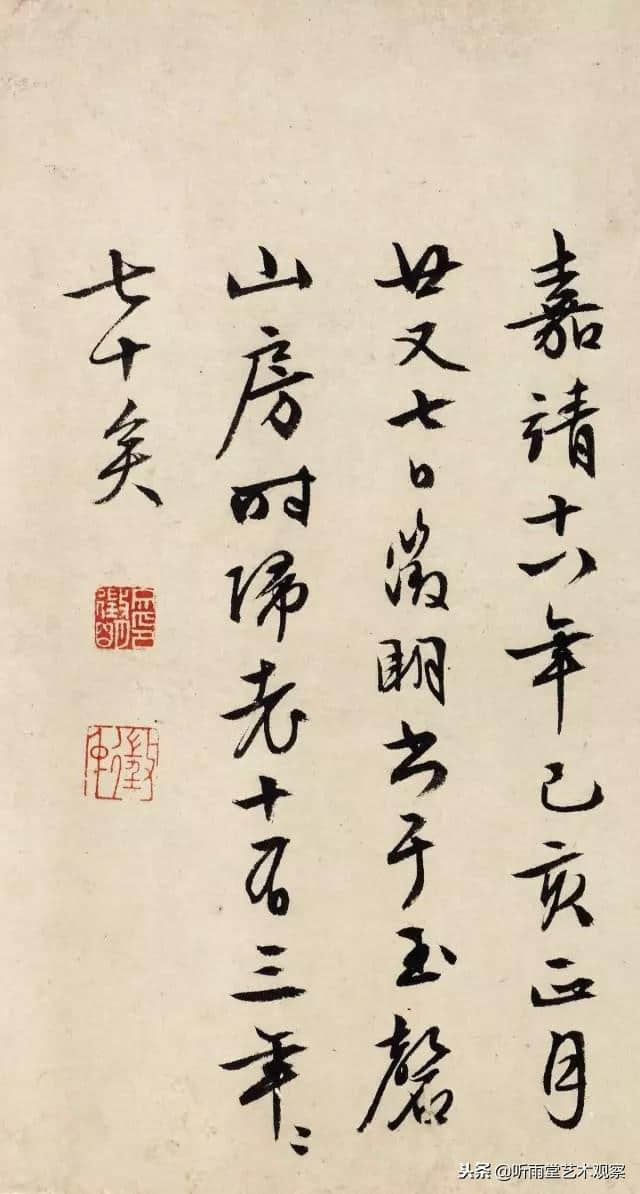 嘉靖十八年己亥正月
廿又七日徵明書于玉磬
山房時歸老十有三年〻
七十矣
徵仲
头条 @听雨堂艺术观察